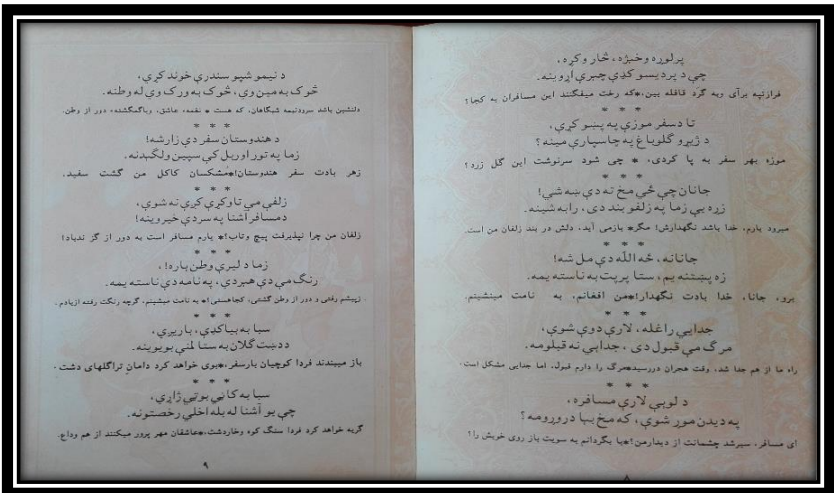 پرلوړه وخېژه، څار وکړه،
چې د پردېسو کډې چېرې اړوینه.
فرازتپه برآی وبه گرد قافله بین،*که رخت میفگنند این مسافران به کجا؟
* * *
تا د سفر موزې په پښو کړې،
د ژیړو گلو باغ په چا سپارې مینه؟
موزه بهر سفر به پا کردی، * چی شود سرنوشت این گل زرد؟
* * *
جانان چې ځي مخ ته دې ښه شي!
زړه یې زما په زلفو بند دی، رابه شینه.
میرود یارم، خدا باشد نگهدارش! مگر* بازمی آید، دلش در بند زلفان من است.
* * *
جانانه، ځه الله دې مل شه!
زه پښتنه یم، ستا پر پت به ناسته یمه.
برو، جانا، خدا بادت نگهدار!*من افغانم، به نامت مینشینم.
* * *
جدایي راغله، لارې دوې شوې،
مرگ مې قبول دی، جدایي نه قبلومه.
راه ما از هم جدا شد، وقت هجران دررسید*مرگ را دارم قبول، اما جدایی مشکل است.
* * *
د لویې لارې مسافره،
په دیدن موړ شوې، که مخ بیا دروړومه؟
ای مسافر، سیرشد چشمانت از دیدارمن؟*یا بگردانم به سویت باز روی خویش را؟
۸
د نیمو شپو سندرې خوند کړې،
څوک به مین وي، څوک به ورک وي له وطنه.
دلنشین باشد سرودنیمه شبگاهان، که هست * نغمهء عاشق، ویاگمگشتهء دور از وطن.
* * *
د هندوستان سفر دې زار شه!
زما په تور اوربل کې سپین ولگېدنه.
زهر بادت سفر هندوستان!*مشکسان کاکل من گشت سفید.
* * *
زلفې مې تاو کړې کړې نه شوې،
د مسافر آشنا په سر دې خیر وینه!
زلفان من چرا نپذیرفت پیچ وتاب؟* یارم مسافر است به دور از گز ندباد!
* * *
زما د لیرې وطن یاره!،
رنگ مې دې هېر دی، په نامه دې ناسته یمه.
زپیشم رفتی و دور از وطن گشتی، کجاهستی!* به نامت مینشینم، گرچه رنگت رفته ازیادم.
* * *
سبا به بیا کډې، بارېږي،
د دښت گلان به ستا لمنې بویوینه.
باز میبندند فردا کوچیان بارسفر،*بوی خواهد کرد دامان تراگلهای دشت.
* * *
سبا به کاڼي بوټي ژاړي،
چې یو آشنا له بله اخلي رخصتونه.
گریه خواهد کرد فردا سنگ کوه وخاردشت،*عاشقان مهر پرور میکنند از هم وداع.
۹